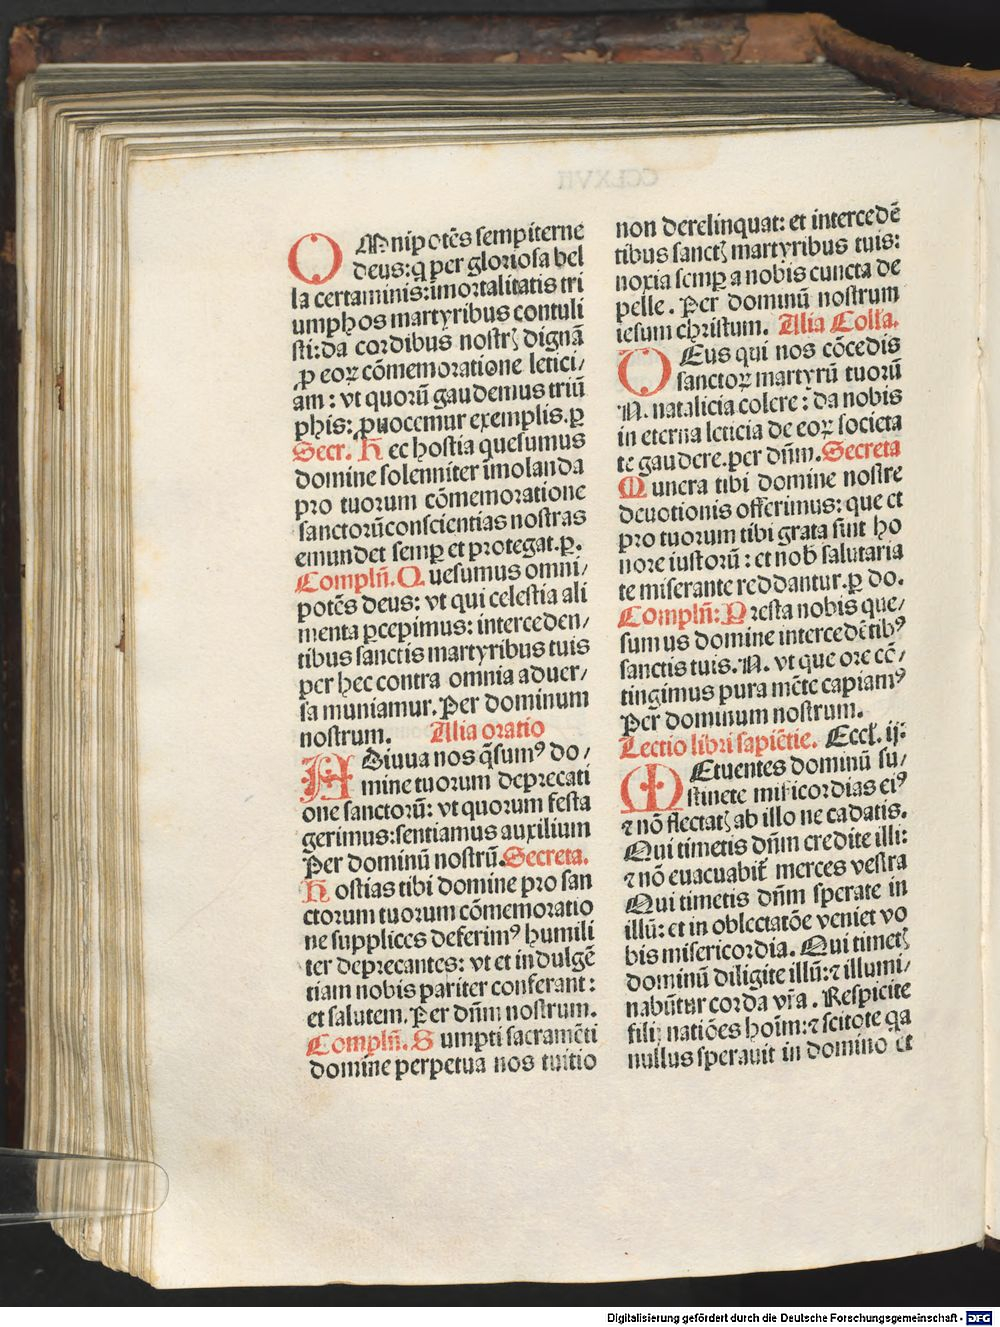 OMnipotẽs sempiterne
deus: q̃ per gloriosa bel
la certaminis: imortalitatis tri
umphos martyribus contuli
sti: da cordibus nostrꝭ dignã
ꝓ eoꝝ cõmemoratione letici⸗
am : vt quoꝛũ gaudemus triũ
phis: ꝓuocemur exemplis. ꝑ
Secr. Hec hostia quesumus
domine solenniter imolanda
pro tuorum cõmemoratione
sanctorũ conscientias nostras
emundet semꝑ et protegat. ꝑ.
Complñ. Quesumus omni⸗
potẽs deus: vt qui celestia ali
menta ꝑcepimus: interceden⸗
tibus sanctis martyribus tuis
per hec contra omnia aduer⸗
sa muniamur. Per dominum
nostrum. Alia oratio
ADiuua nos q̃sumꝰ do⸗
mine tuorum deprecati
one sanctorũ: vt quorum festa
gerimus: sentiamus auxilium
Per dominũ nostrũ. Secreta.
Hostias tibi domine pro san
ctorum tuorum cõmemoratio
ne supplices deferimꝰ humili
ter deprecantes: vt et indulgẽ
tiam nobis pariter conferant:
et salutem. Per dñm nostrum.
Complñ. Sumpti sacramẽti
domine perpetua nos tuitio
non derelinquat: et intercedẽ
tibus sanctꝭ martyribus tuis:
noxia semꝑ a nobis cuncta de
pelle. Per dominũ nostrum
iesum christum. Alia Colla.
DEus qui nos cõcedis
sanctoꝝ martyrũ tuorũ
N. natalicia colere: da nobis
in eterna leticia de eoꝝ societa
te gaudere. per dñm. Secreta
Munera tibi domine nostre
deuotionis offerimus: que et
pro tuorum tibi grata sint ho
nore iustorũ: et nob̃ salutaria
te miserante reddantur. ꝑ do.
Complñ: Presta nobis que⸗
sumus domine intercedẽtibꝰ
sanctis tuis. N. vt que ore cõ⸗
tingimus pura mẽte capiamꝰ
Per dominum nostrum.
Lectio libri sapiẽtie. Eccl. ij:
MEtuentes dominũ su⸗
stinete misericordias eiꝰ
⁊ nõ flectatꝭ ab illo ne cadatis.
Qui timetis dñm credite illi:
⁊ nõ euacuabit᷑ merces vestra
Qui timetis dñm sperate in
illũ: et in oblectatõe veniet vo
bis misericordia. Qui timetꝭ
dominũ diligite illũ: ⁊ illumi⸗
nabũtur corda vr̃a . Respicite
filij natiões hoĩm: ⁊ scitote qa
nullus sperauit in domino et
Digitalisierung gefördert durch die Deutsche Forschungsgemeinschaft - DFG